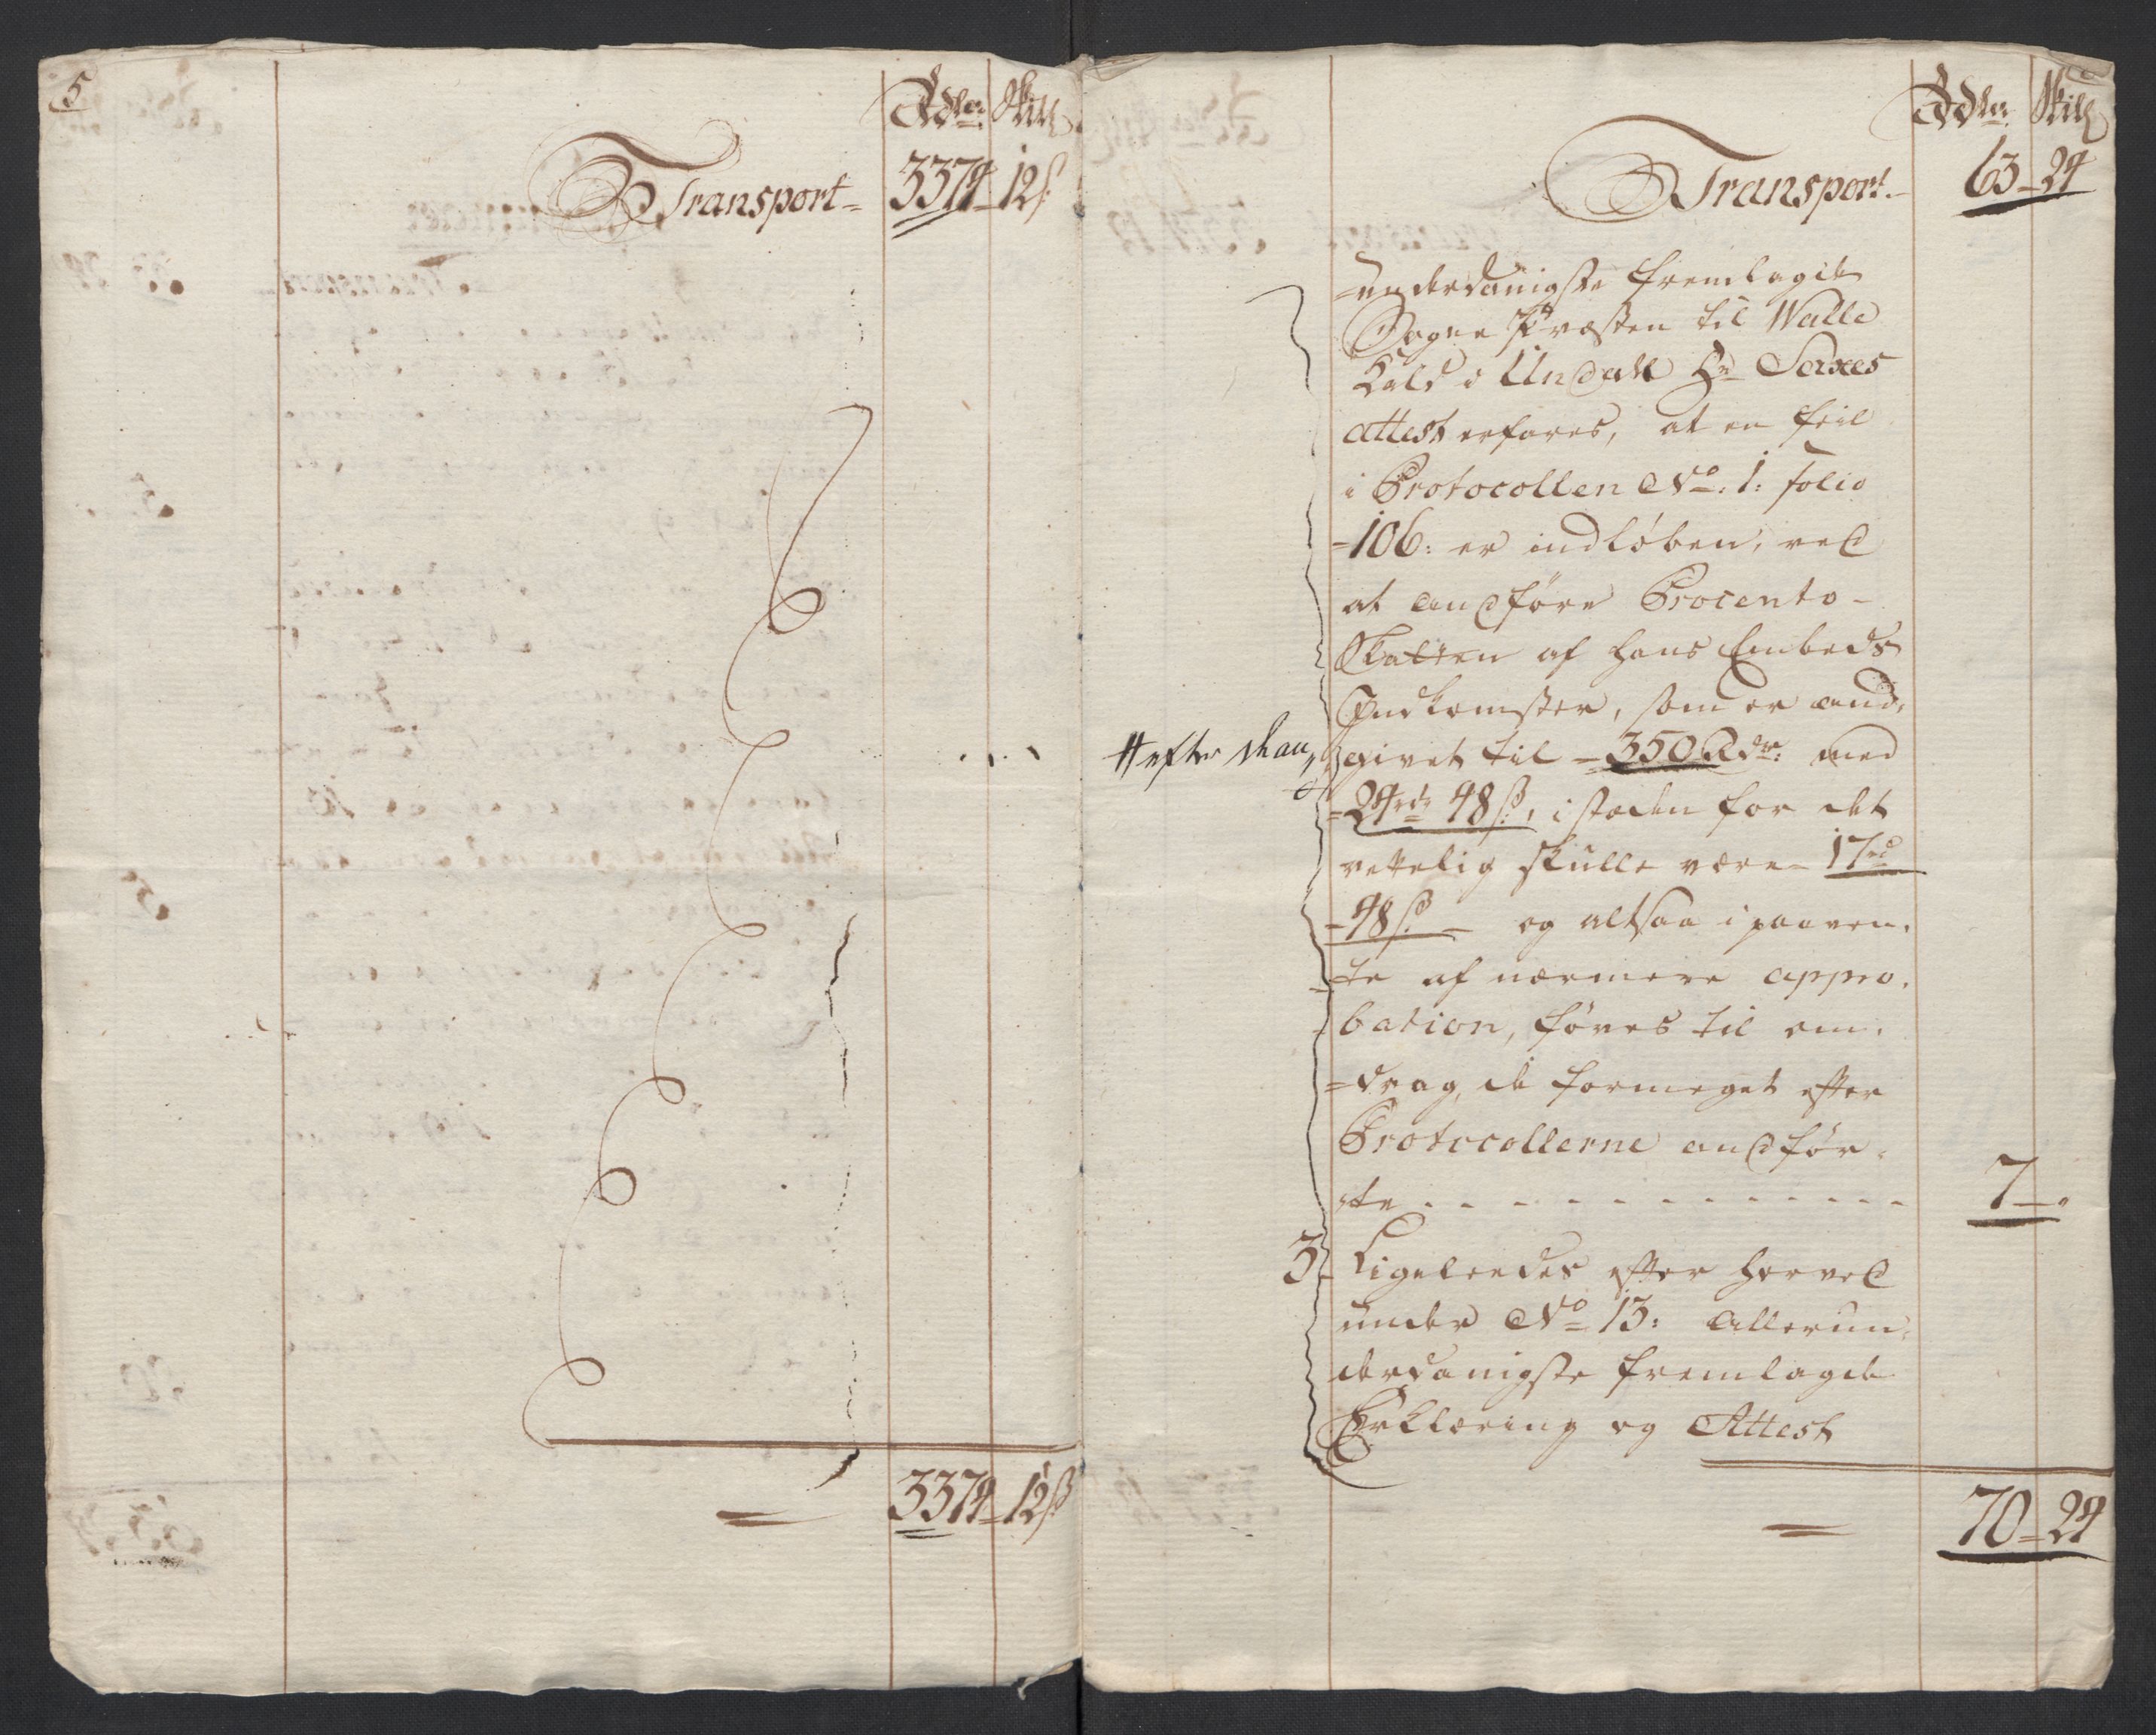 5
Rdler Skill
Transport 3374 12 ß.
3374 12 ß
Rdler Skill
Transport 63 24
underdanigste fremlagde
Sogne Præsten til Walle
Kald i Undahl Hr
attest erfares, at en feil
i Protocollen No. 1: folio
106: er indløben, ved
at andføre Procento-
Skatten af hans Embeds
Indkomster, som er and-
givet til 350 Rdr: med
24 rdr 48 ß, i stæden for det
rettelig skulle være 17 rd
48 ß. og altsaa i paaven-
te af nærmere appro-
bation, føres til
drag, de formeget efter
Protocollerne andfør-
te - - - - - - - - - - 7 - „
3 Ligeleedes efter herved
under No 13: allerun-
derdanigste fremlagde
Erklæring og Attest
70 24